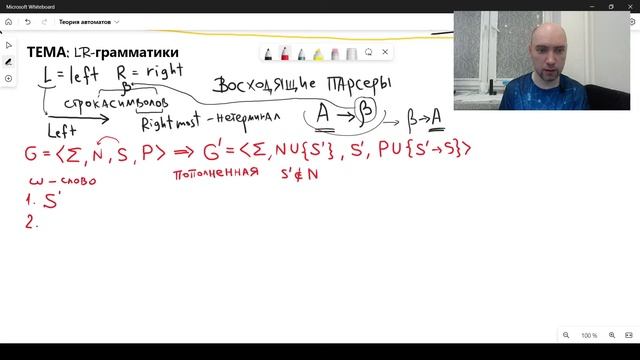 Microsoft Whiteboard
Теория автоматов
ТЕМА: LR-грамматики
L = left R = right
ВОСХОДЯЩИЕ ПАРСЕРЫ
β
СТРОКАСИМВОЛОВ
A → β
β → A
Left
Rightmost - нетерминал
G = <Σ, N, S, P> ⟹ G' = <Σ, N∪{S'}, S', P∪{S'→S}>
ω - слово
ПОПОЛНЕННАЯ S'∉N
1. S'
2.
100 %